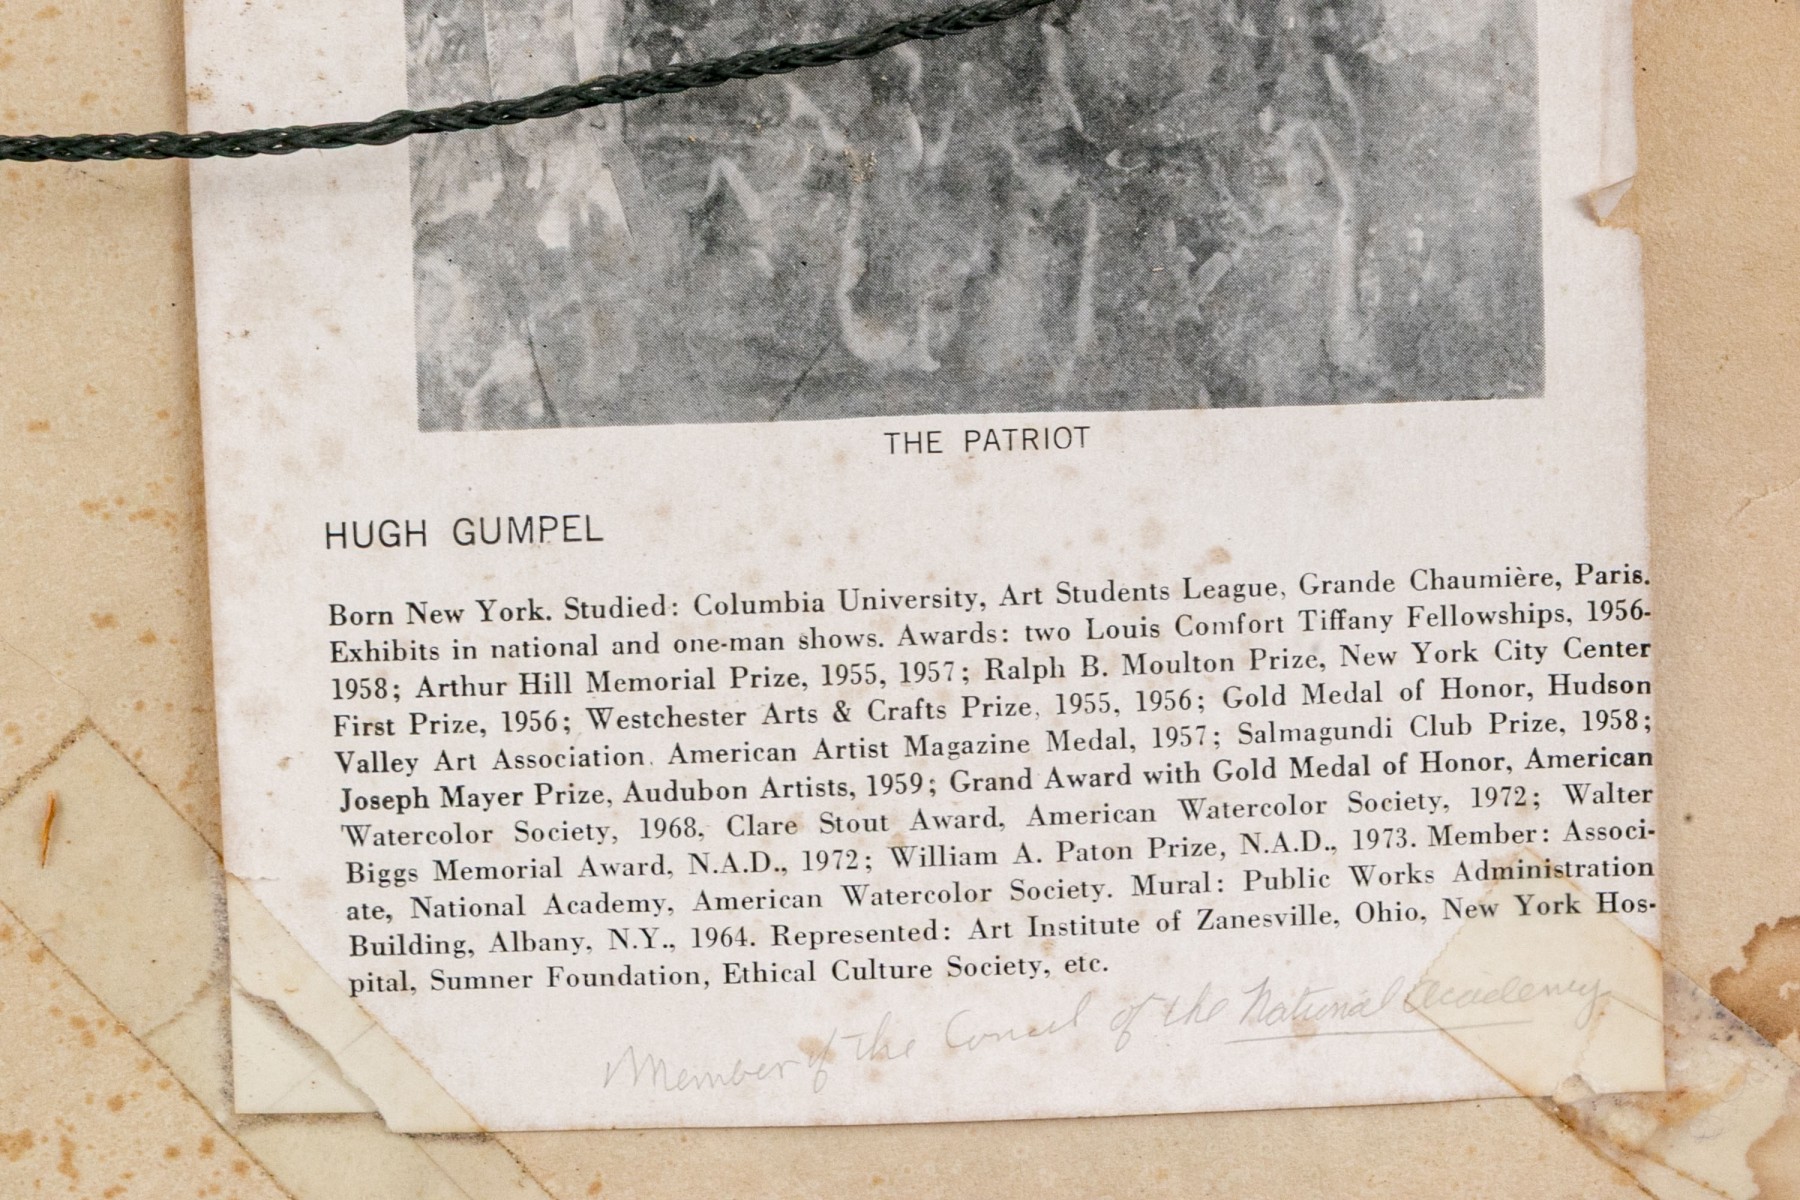 THE PATRIOT
HUGH GUMPEL
Born New York. Studied: Columbia University, Art Students League, Grande Chaumière, Paris.
Exhibits in national and one-man shows. Awards: two Louis Comfort Tiffany Fellowships, 1956-
1958; Arthur Hill Memorial Prize, 1955, 1957; Ralph B. Moulton Prize, New York City Center
First Prize, 1956; Westchester Arts & Crafts Prize, 1955, 1956; Gold Medal of Honor, Hudson
Valley Art Association. American Artist Magazine Medal, 1957; Salmagundi Club Prize, 1958;
Joseph Mayer Prize, Audubon Artists, 1959; Grand Award with Gold Medal of Honor, American
Watercolor Society, 1968, Clare Stout Award, American Watercolor Society, 1972; Walter
Biggs Memorial Award, N.A.D., 1972; William A. Paton Prize, N.A.D., 1973. Member: Associ-
ate, National Academy, American Watercolor Society. Mural: Public Works Administration
Building, Albany, N.Y., 1964. Represented: Art Institute of Zanesville, Ohio, New York Hos-
pital, Sumner Foundation, Ethical Culture Society, etc.
Member of the Council of the National Academy.